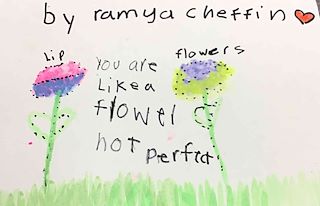 by ramya cheffin
Lip
flowers
You are
Like a
flowel
not perfict